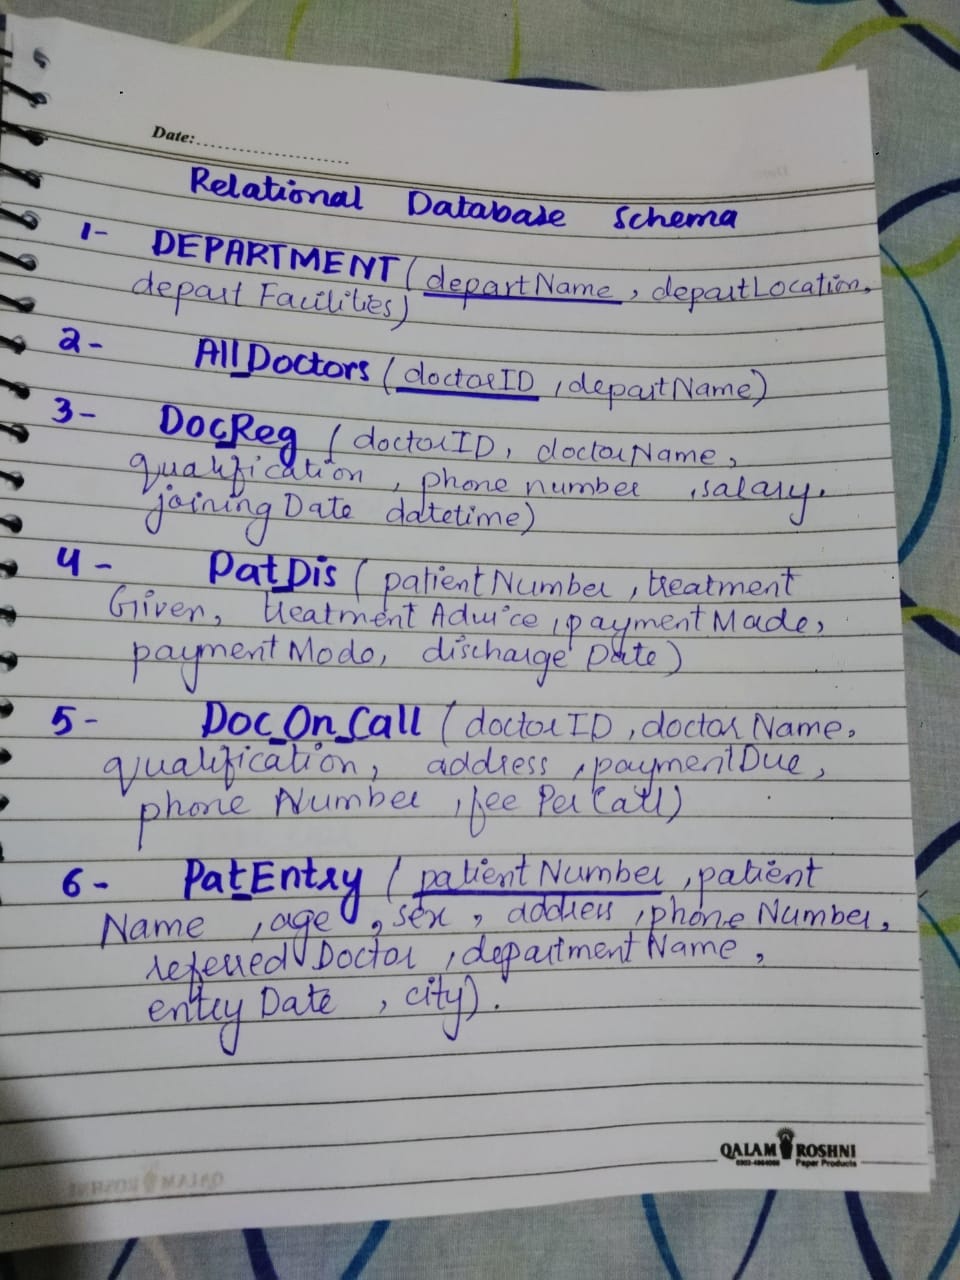 Date:
Relational Database Schema
1- DEPARTMENT (departName, departLocation,
depart Facilities)
2- All_Doctors (doctorID, departName)
3- Doc_Reg (doctorID, doctorName,
qualification, phone number, salary,
joining Date datetime)
4- Pat_Dis (patientNumber, treatment
Given, treatment Advice, payment Made,
payment Mode, discharge Date)
5- Doc_On_Call (doctorID, doctor Name,
qualification, address, paymentDue,
phone Number, fee Per Call)
6- Pat_Entry (patient Number, patient
Name, age, sex, address, phone Number,
referred Doctor, department Name,
entry Date, city).
QALAM ROSHNI
Paper Products